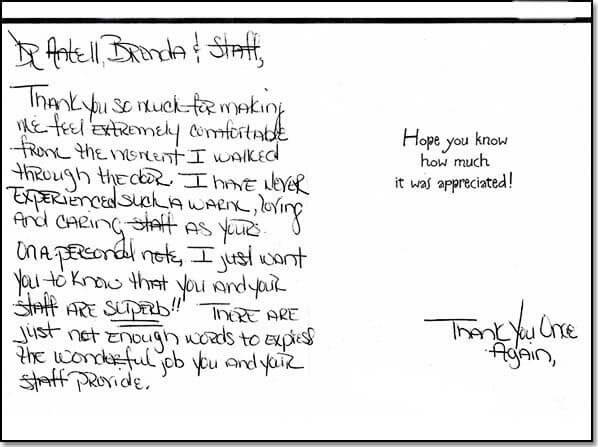 Dr Antell, Brenda & Staff,
Thank you so much for making
me feel extremely comfortable
from the moment I walked
through the door. I have never
experienced such a warm, loving
and caring staff as yours.
On a personal note, I just want
you to know that you and your
staff are superb!! There are
just not enough words to express
the wonderful job you and your
staff provide.
Hope you know
how much
it was appreciated!
Thank you Once
Again,